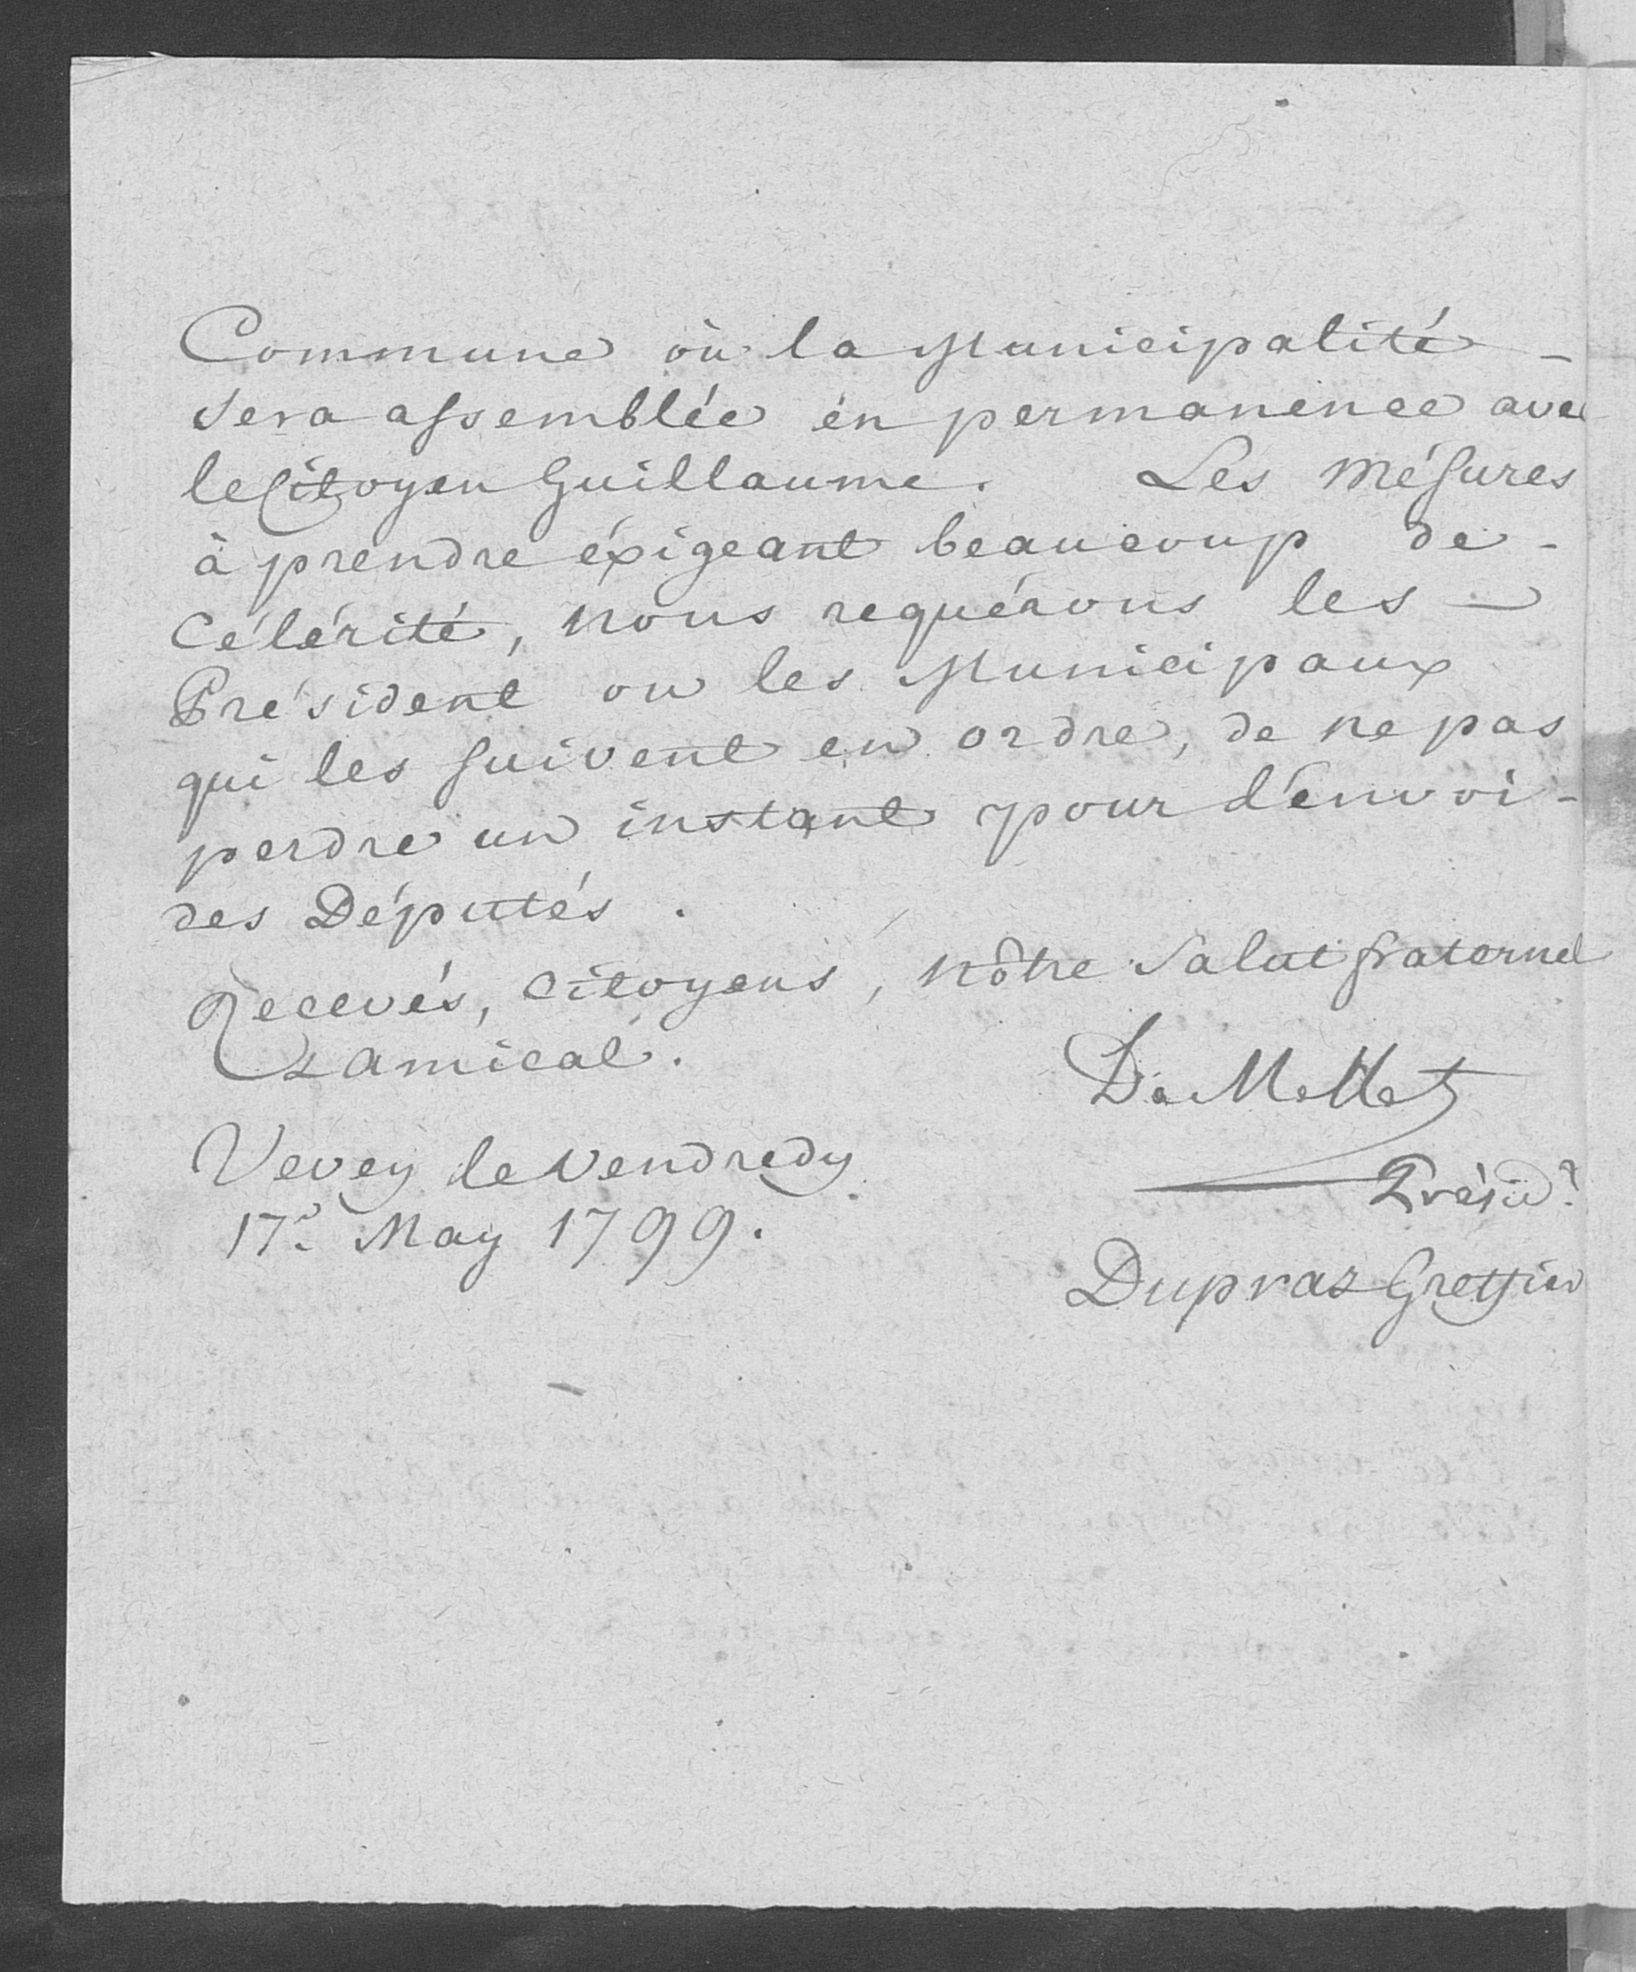 Commune où la Municipalité -
sera assemblée en permanence avec
le Citoyen Guillaume. Les Mésures
à prendre éxigeant beaucoup de -
Célérité, nous requérons les -
Président ou les Municipaux
qui les suivent en ordre, de ne pas
perdre un instant pour l'envoi -
des Députés.
Recevés, Citoyens, nôtre Salut fraternel
& amical.
De Mellet
Vevey le Vendredy
Présidt
17e May 1799.
Dupraz Greffier